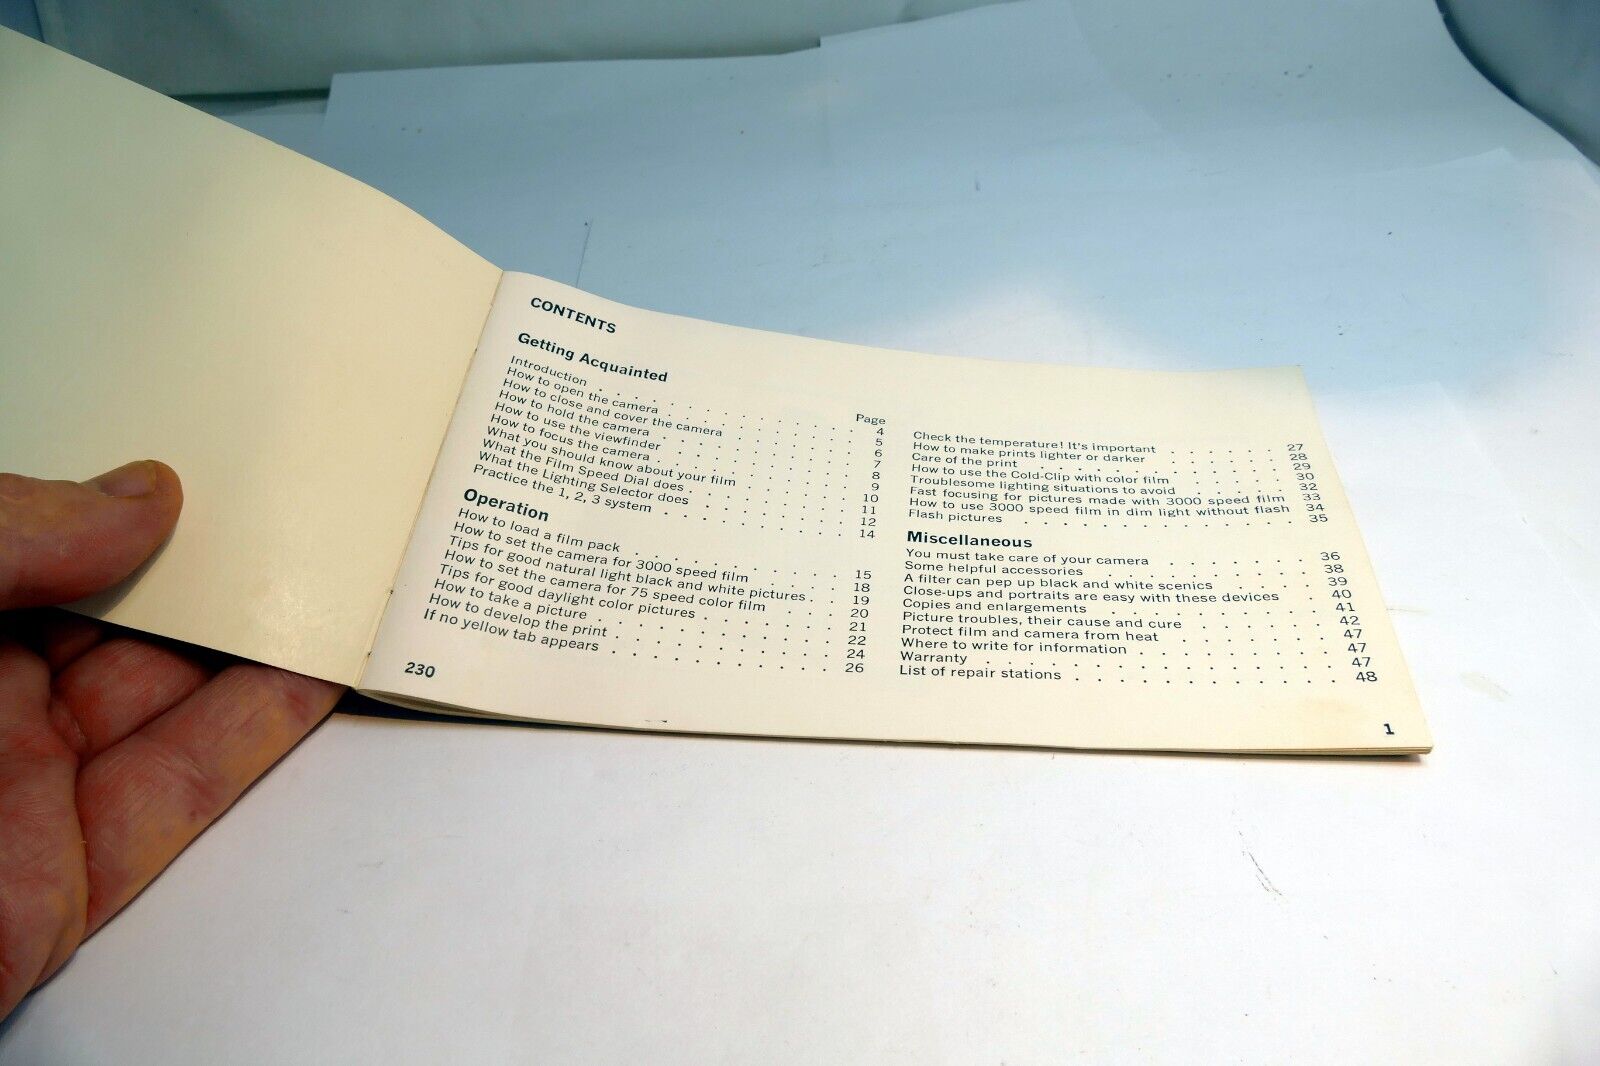 CONTENTS
Getting Acquainted
Page
Introduction . . . . . . . . . . . . 4
How to open the camera . . . . . . . . . 5
How to close and cover the camera . . . . . . 6
How to hold the camera . . . . . . . . . 7
How to use the viewfinder . . . . . . . . 8
How to focus the camera . . . . . . . . . 9
What you should know about your film . . . . . 10
What the Film Speed Dial does . . . . . . . 11
What the Lighting Selector does . . . . . . 12
Practice the 1, 2, 3 system . . . . . . . . 14
Operation
How to load a film pack . . . . . . . . . 15
How to set the camera for 3000 speed film . . . . 18
Tips for good natural light black and white pictures . . 19
How to set the camera for 75 speed color film . . . 20
Tips for good daylight color pictures . . . . . . 21
How to take a picture . . . . . . . . . . 22
How to develop the print . . . . . . . . . 24
If no yellow tab appears . . . . . . . . . 26
230
Check the temperature! It's important . . . . . . 27
How to make prints lighter or darker . . . . . . 28
Care of the print . . . . . . . . . . . 29
How to use the Cold-Clip with color film . . . . . 30
Troublesome lighting situations to avoid . . . . . 32
Fast focusing for pictures made with 3000 speed film 33
How to use 3000 speed film in dim light without flash 34
Flash pictures . . . . . . . . . . . . 35
Miscellaneous
You must take care of your camera . . . . . . 36
Some helpful accessories . . . . . . . . . 38
A filter can pep up black and white scenics . . . . 39
Close-ups and portraits are easy with these devices . 40
Copies and enlargements . . . . . . . . . 41
Picture troubles, their cause and cure . . . . . . 42
Protect film and camera from heat . . . . . . . 47
Where to write for information . . . . . . . . 47
Warranty . . . . . . . . . . . . . . 47
List of repair stations . . . . . . . . . . . 48
1